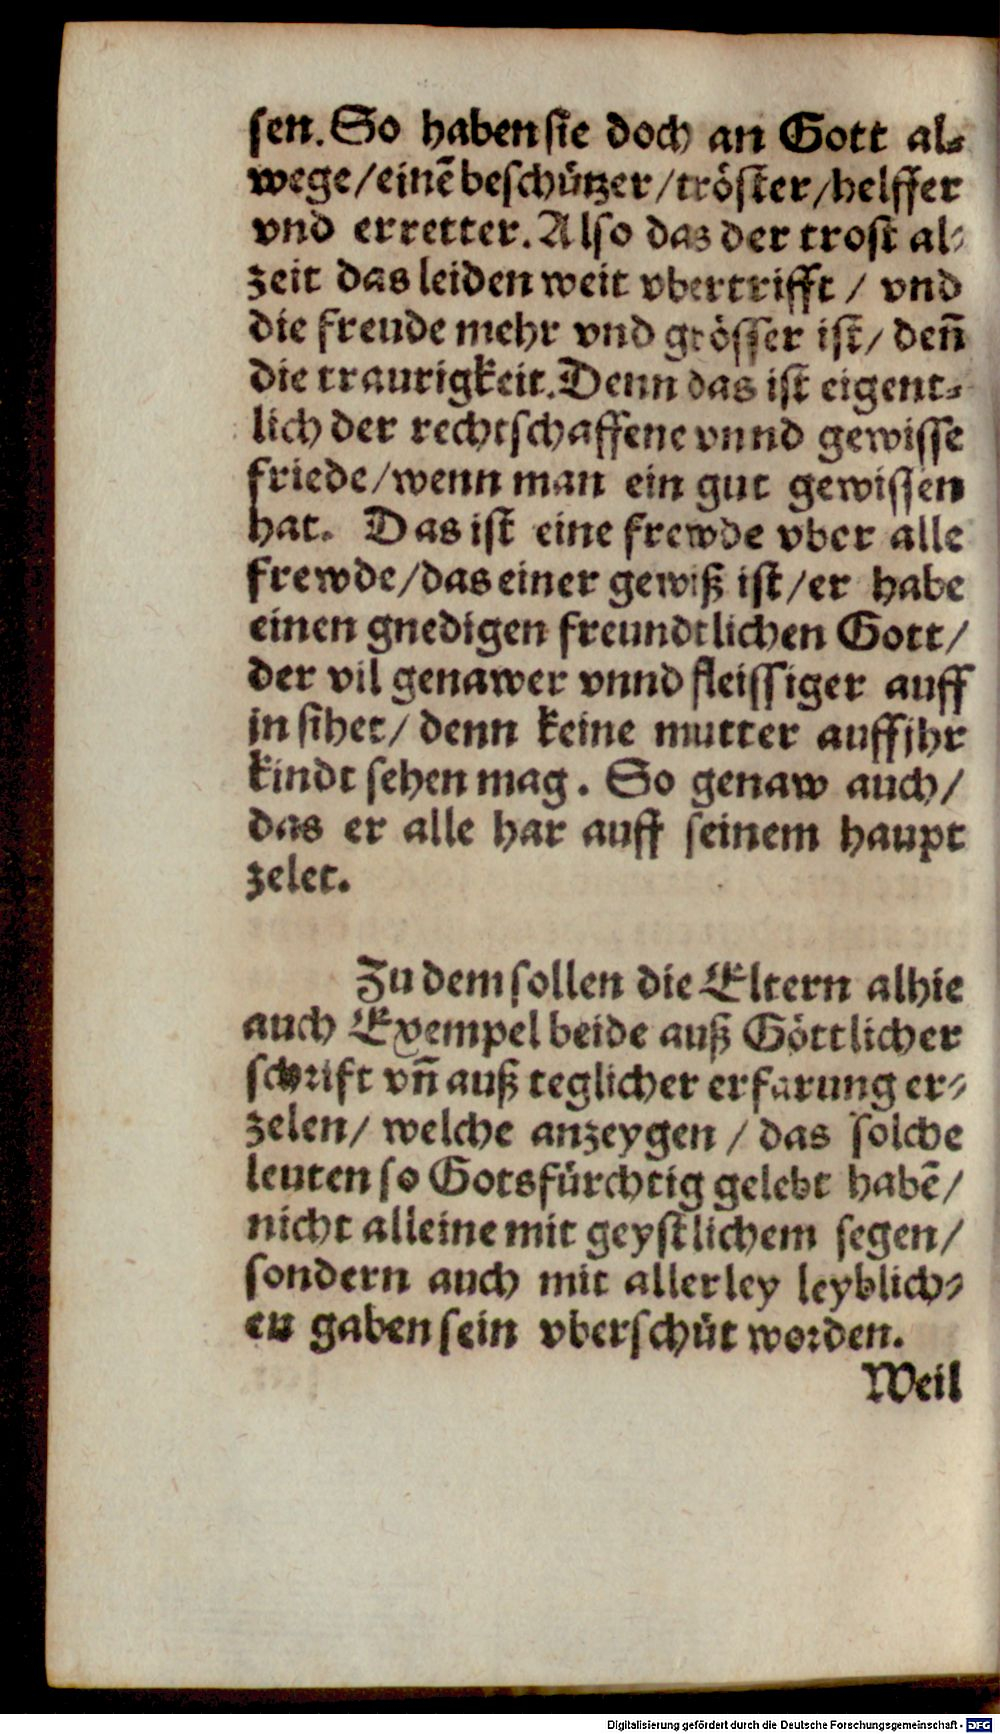 sen. So haben sie doch an Gott al⸗
wege/einē beschützer/tröster/helffer
vnd erretter. Also das der trost al⸗
zeit das leiden weit vbertrifft / vnd
die freude mehr vnd grösser ist/ den̄
die traurigkeit. Denn das ist eigent⸗
lich der rechtschaffene vnnd gewisse
friede/wenn man ein gut gewissen
hat. Das ist eine frewde vber alle
frewde/das einer gewiß ist/er habe
einen gnedigen freundtlichen Gott/
der vil genawer vnnd fleissiger auff
jn sihet/ denn keine mutter auff jhr
kindt sehen mag. So genaw auch/
das er alle har auff seinem haupt
zelet.
Zu dem sollen die Eltern alhie
auch Exempel beide auß Göttlicher
schrift vn̄ auß teglicher erfarung er⸗
zelen/ welche anzeygen / das solche
leuten so Gotsfürchtig gelebt habē/
nicht alleine mit geystlichem segen/
sondern auch mit allerley leyblich⸗
en gaben sein vberschüt worden.
Weil
Digitalisierung gefördert durch die Deutsche Forschungsgemeinschaft - DFG